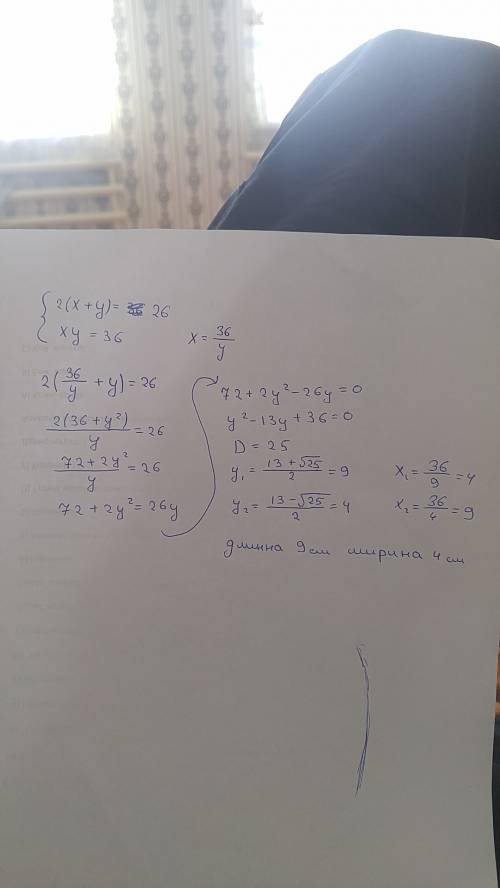 { 2(x+y)= 26
xy = 36    x = 36/y
2(36/y + y) = 26
2(36+y²)/y = 26
72+2y²/y = 26
72+2y² = 26y
72+2y²-26y=0
y²-13y+36=0
D = 25
y₁ = 13+√25/2 = 9    x₁ = 36/9 = 4
y₂ = 13-√25/2 = 4    x₂ = 36/4 = 9
длинна 9см ширина 4см